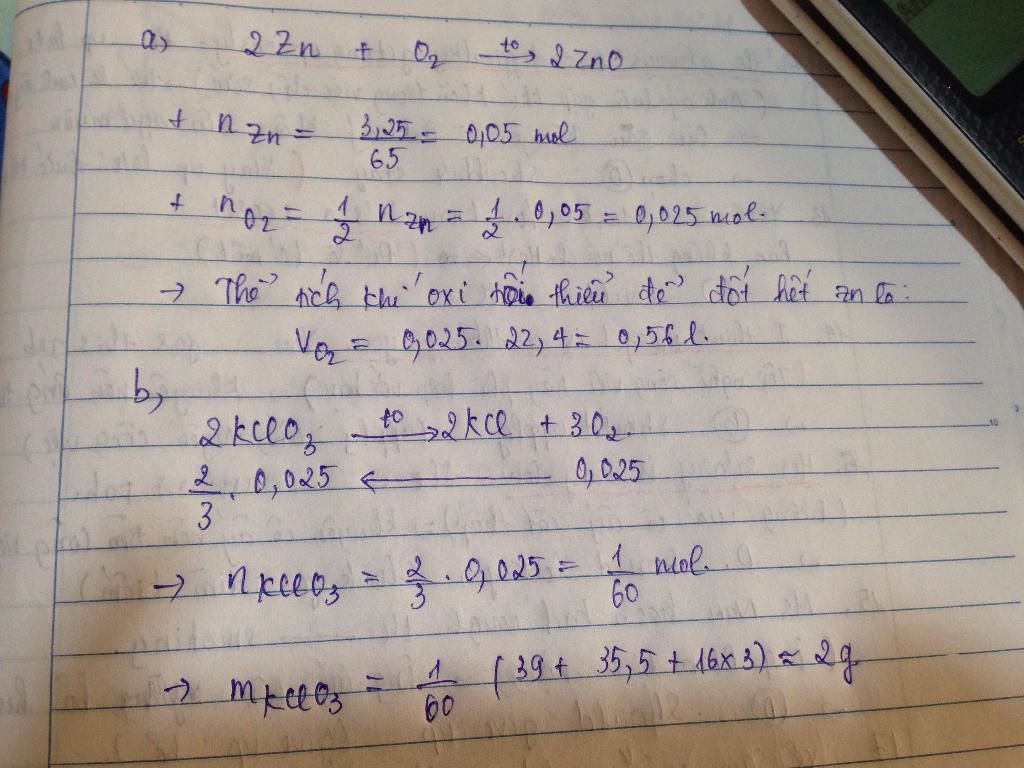 a) 2Zn + O₂ →(t⁰) 2ZnO
+ n Zn = 3,25/65 = 0,05 mol
+ n O₂ = 1/2 n Zn = 1/2 . 0,05 = 0,025 mol.
→ Thể tích khí oxi tối thiểu để đốt hết zn là:
V O₂ = 0,025. 22,4 = 0,56 l.
b,
2KClO₃ →(t⁰) 2KCl + 3O₂
2/3 . 0,025 ← 0,025
→ n KClO₃ = 2/3 . 0,025 = 1/60 mol.
→ m KClO₃ = 1/60 (39 + 35,5 + 16x3) ≈ 2g